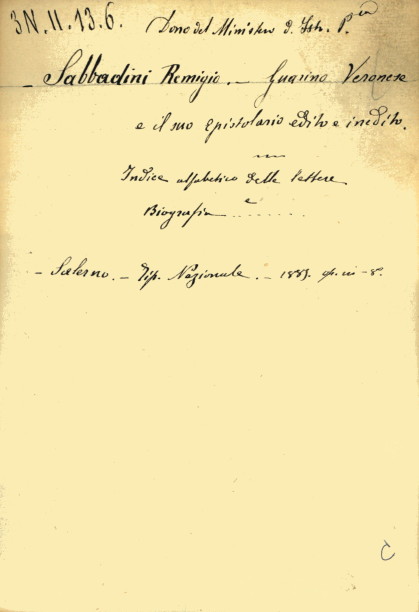 3N.11.13.6.
Dono del Ministero d. Istr. P.ca
— Sabbadini Remigio. — Guarino Veronese
e il suo epistolario edito e inedito.
Indice alfabetico delle lettere
e
Biografia . . . . . . .
— Salerno. — Tip. Nazionale. — 1885. in-8°.